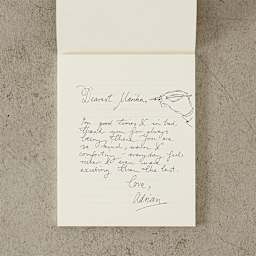 Dearest Marina,
In good times & in bad,
thank you for always
being there. You are
so much, water &
comfort. everyday feels
& even more
exciting than the last.
Love,
Adrian